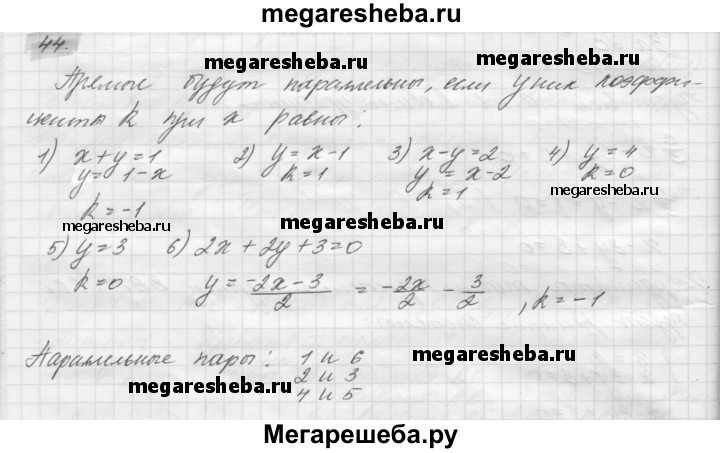 megaresheba.ru
44.
megaresheba.ru
Прямые будут параллельны, если у них коэффи-
циенты k при x равны:
1) x+y=1 2) y=x-1 3) x-y=2 4) y=4
y=1-x k=1 y=x-2 k=0
k=1
k=-1
megaresheba.ru
megaresheba.ru
megaresheba.ru
5) y=3 6) 2x+2y+3=0
k=0 y = -2x-3/2 = -2x/2 - 3/2, k=-1
Параллельные пары: 1 и 6
2 и 3
4 и 5
megaresheba.ru
megaresheba.ru
Мегарешеба.ру